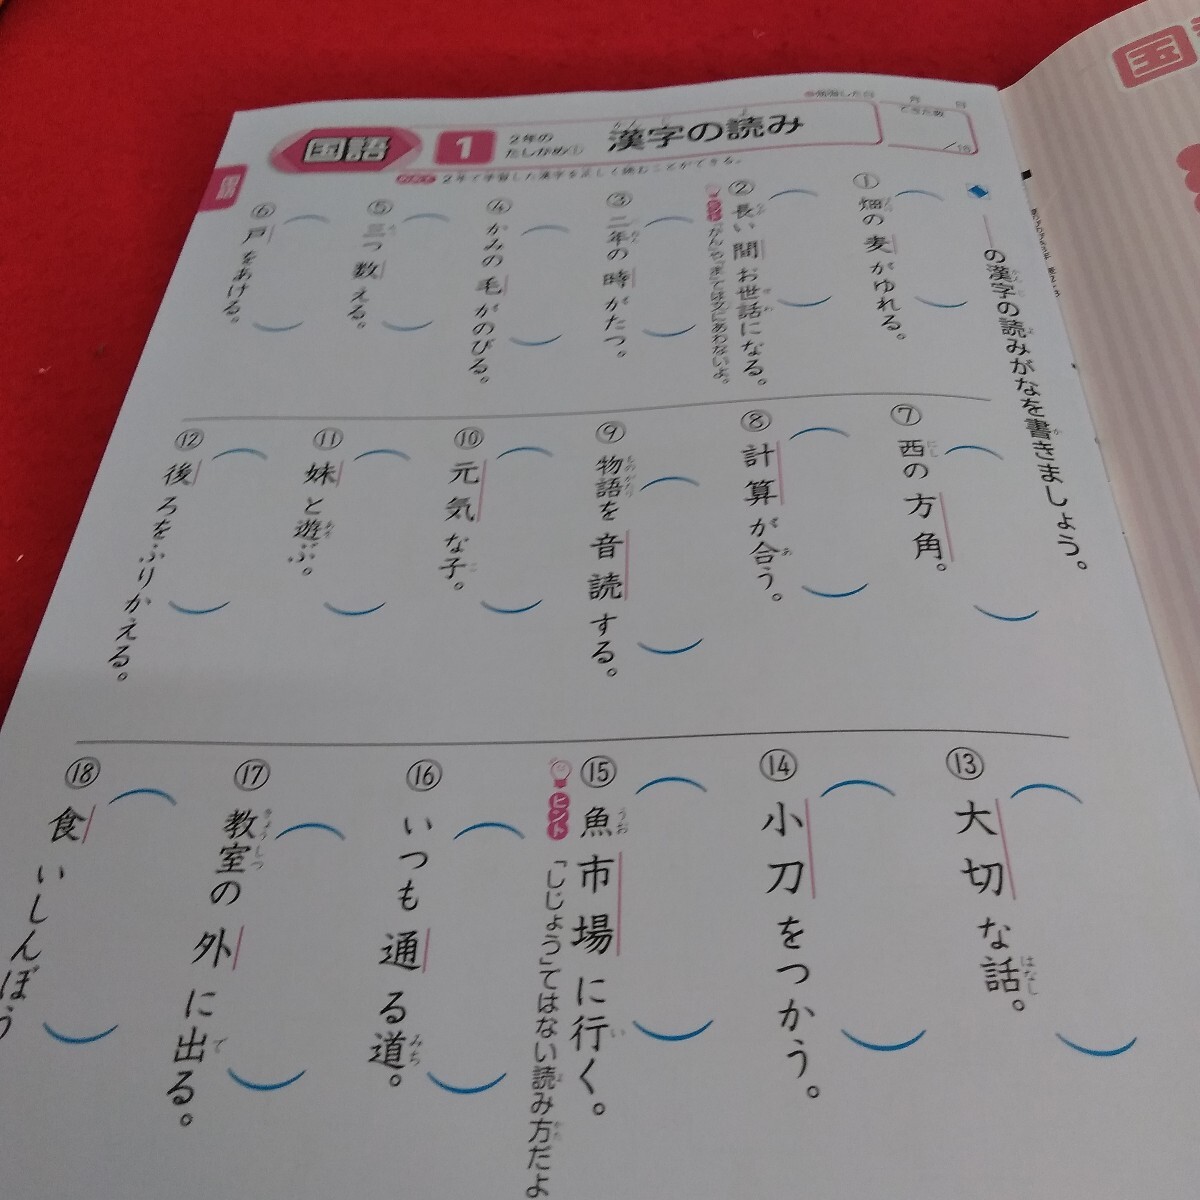 国語
1
2年の
たしかめ①
漢字の読み
かん じ よ
勉強した日 月 日
できた数
/18
2年で学習した漢字を正しく読むことができる。
国語
――の漢字の読みがなを書きましょう。
① 畑の麦がゆれる。
② 長い間お世話になる。
③ 二年の時がたつ。
④ かみの毛がのびる。
⑤ 三つ数える。
⑥ 戸をあける。
⑦ 西の方角。
⑧ 計算が合う。
⑨ 物語を音読する。
⑩ 元気な子。
⑪ 妹と遊ぶ。
⑫ 後ろをふりかえる。
⑬ 大切な話。
⑭ 小刀をつかう。
⑮ 魚市場に行く。
ヒント
「しじょう」ではない読み方だよ
⑯ いつも通る道。
⑰ 教室の外に出る。
⑱ 食いしんぼう
国